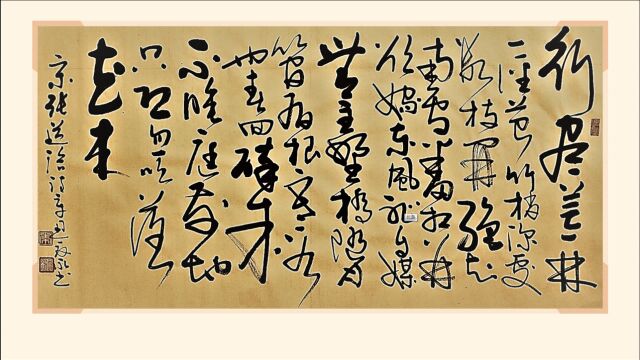 行尽荒林
一径苔竹梢深处
数枝开绝知
南雪羞相并
欲嫁东风耻自媒
无主野桥随月
管有根寒谷
也春回醉
不睡庭前地
只恐忽吹落
花来
宋张道洽诗
书